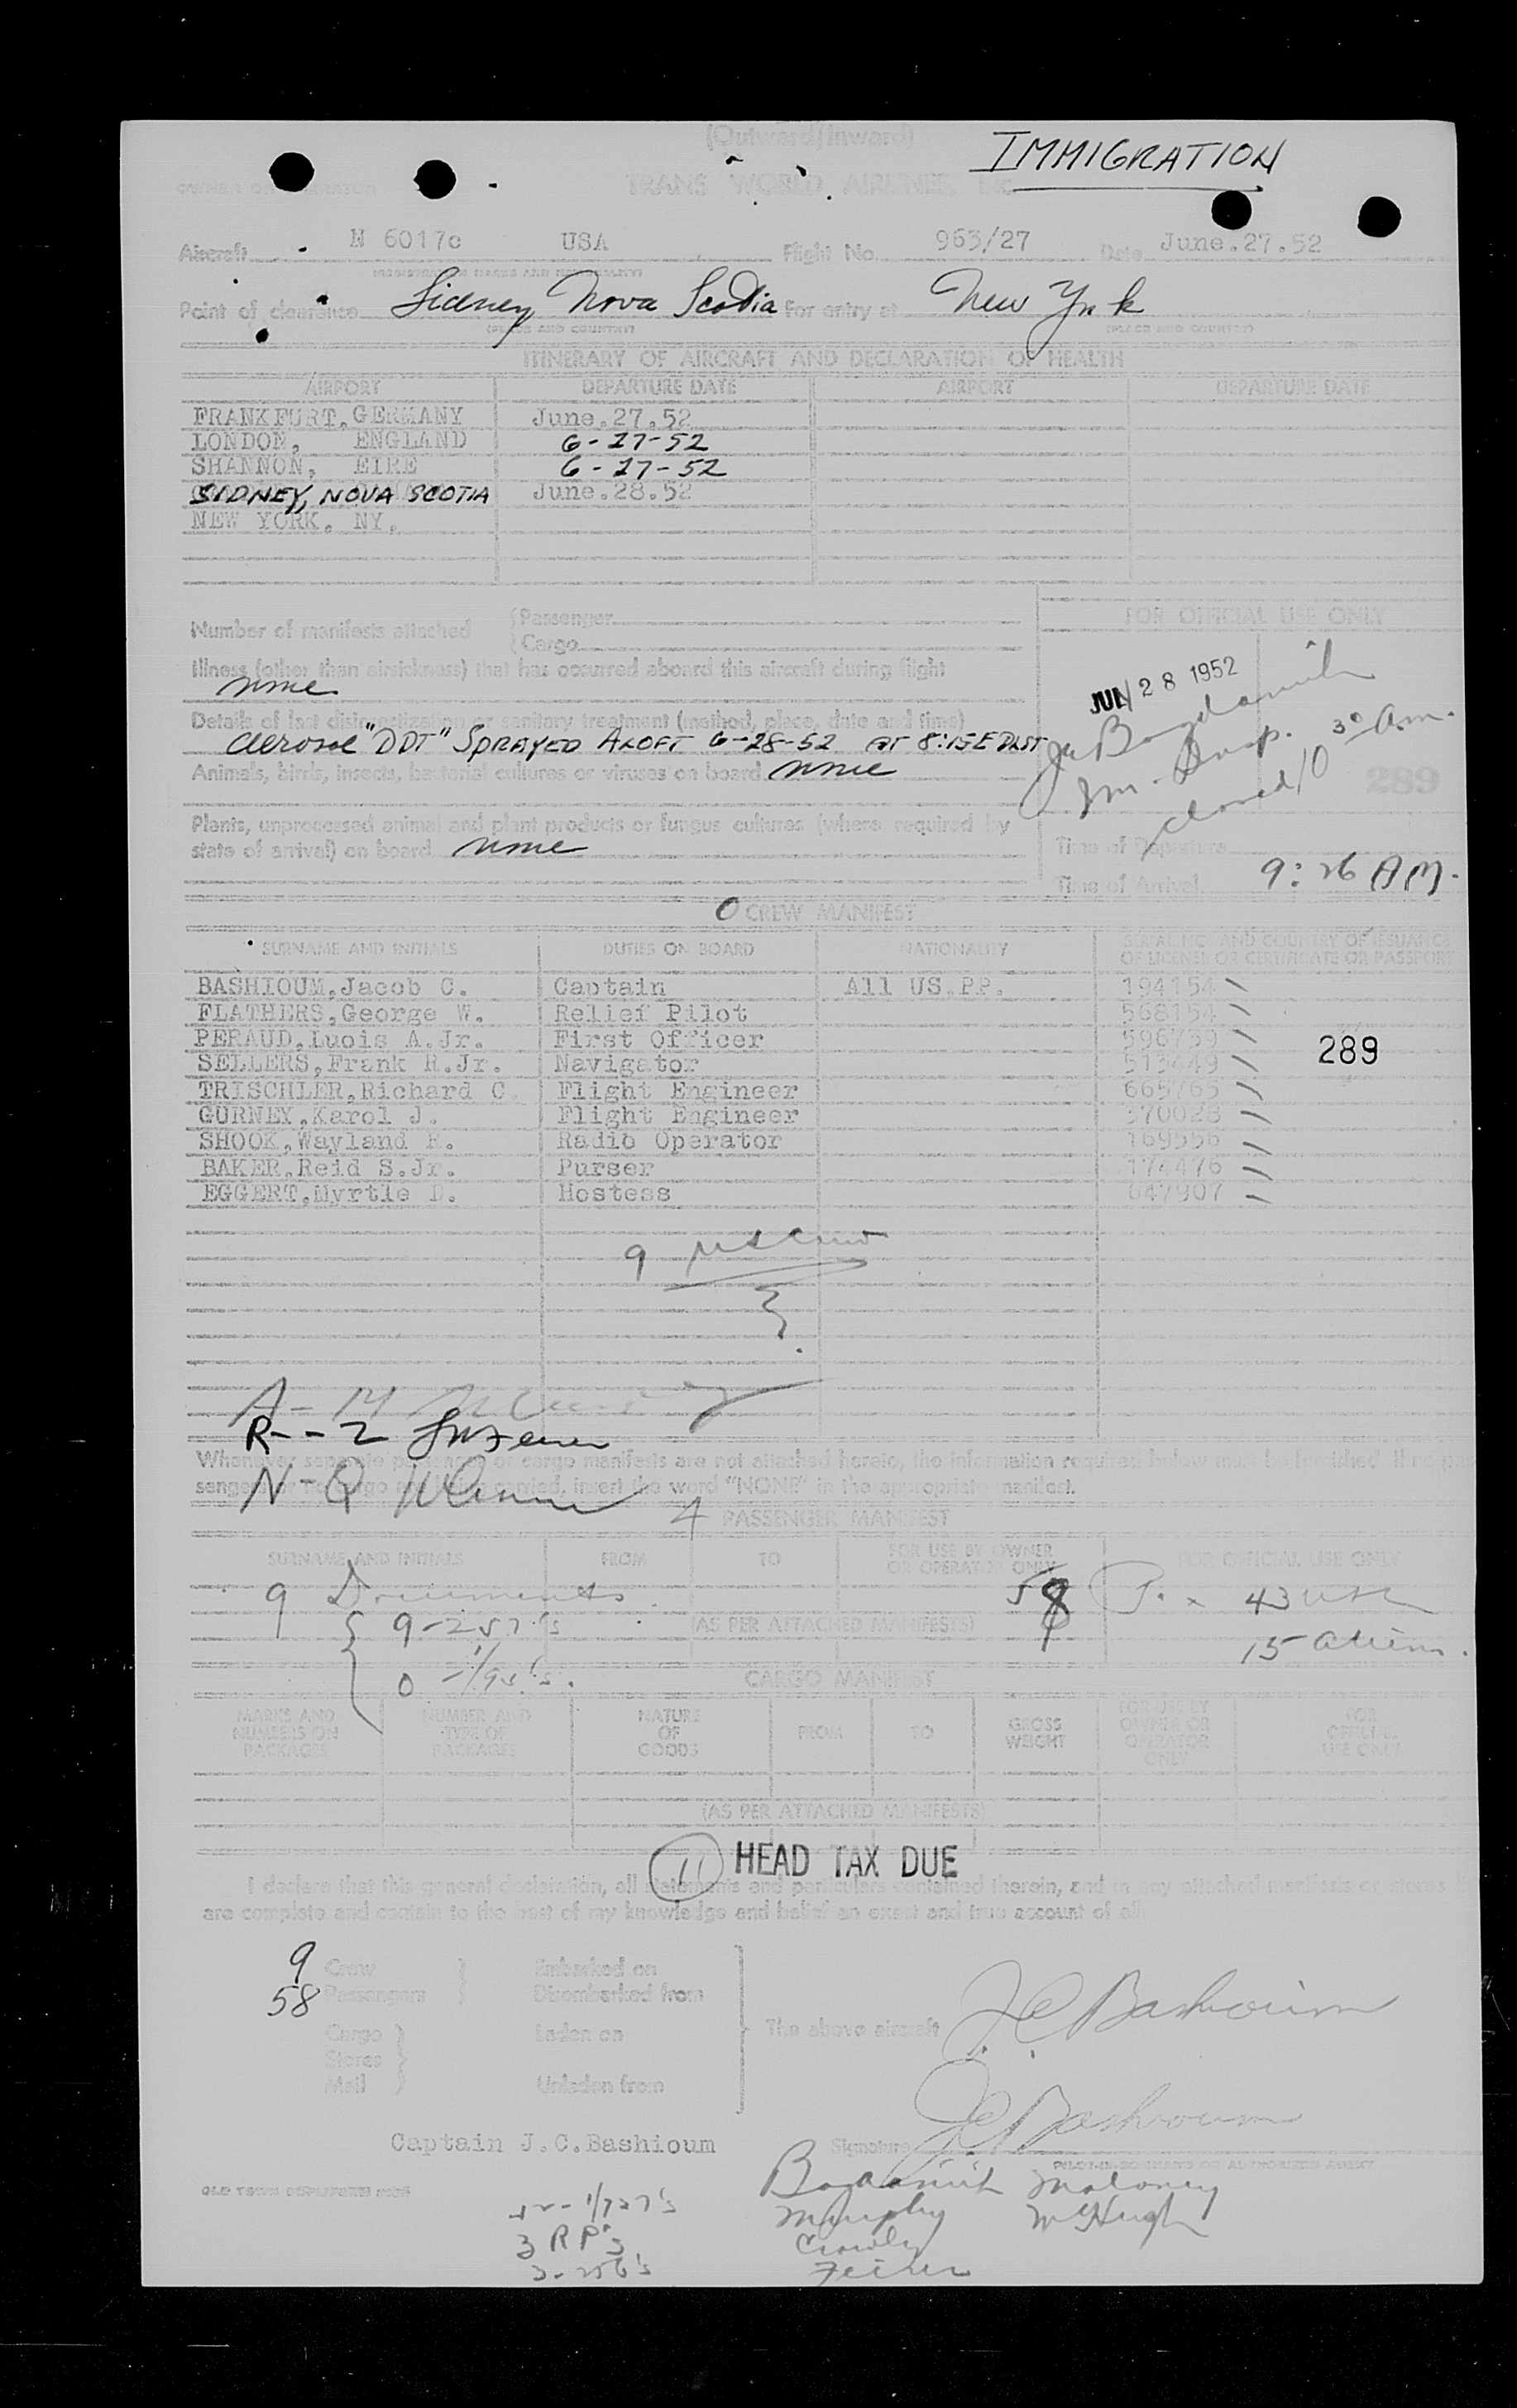 (Outward/Inward)
IMMIGRATION
TRANS WORLD AIRLINES, INC.
OWNER OR OPERATOR
Aircraft N 6017c USA Flight No. 963/27 Date June.27.52
(REGISTRATION MARKS AND NATIONALITY)
Point of clearance Sidney Nova Scotia For entry at New York
(PLACE AND COUNTRY) (PLACE AND COUNTRY)
ITINERARY OF AIRCRAFT AND DECLARATION OF HEALTH
AIRPORT DEPARTURE DATE AIRPORT DEPARTURE DATE
FRANKFURT, GERMANY June.27.52
LONDON, ENGLAND 6-27-52
SHANNON, EIRE 6-27-52
SIDNEY, NOVA SCOTIA June.28.52
NEW YORK. NY.
Number of manifests attached { Passenger
{ Cargo
FOR OFFICIAL USE ONLY
Illness (other than airsickness) that has occurred aboard this aircraft during flight
none
JUN 28 1952
Details of last disinsectization or sanitary treatment (method, place, date and time)
Aerosol "DDT" SPRAYED ALOFT 6-28-52 AT 8:15 EDLST
Im. Insp.
closed 10 30 a.m.
Animals, birds, insects, bacterial cultures or viruses on board none
289
Plants, unprocessed animal and plant products or fungus cultures (where required by
state of arrival) on board none
Time of Departure
Time of Arrival 9:26 AM.
0 CREW MANIFEST
SURNAME AND INITIALS DUTIES ON BOARD NATIONALITY SERIAL NO. AND COUNTRY OF ISSUANCE
OF LICENSE OR CERTIFICATE OR PASSPORT
BASHIOUM,Jacob C. Captain All US.PP. 194154
FLATHERS,George W. Relief Pilot 568154
PERAUD,Luois A.Jr. First Officer 596739
SELLERS,Frank R.Jr. Navigator 513449
289
TRISCHLER,Richard C. Flight Engineer 665765
GURNEY,Karol J. Flight Engineer 370028
SHOOK,Wayland R. Radio Operator 169556
BAKER,Reid S.Jr. Purser 174476
EGGERT,Myrtle D. Hostess 647907
9
A - 14
R--2
Whenever separate passenger or cargo manifests are not attached hereto, the information required below must be furnished. If no pas-
N - 0
senger or no cargo are being carried, insert the word "NONE" in the appropriate manifest.
4 PASSENGER MANIFEST
SURNAME AND INITIALS FROM TO FOR USE BY OWNER
OR OPERATOR ONLY FOR OFFICIAL USE ONLY
9 Documents 58 43 USC
9-257's (AS PER ATTACHED MANIFESTS) 15 aliens.
0 -
CARGO MANIFEST
MARKS AND
NUMBERS ON
PACKAGES NUMBER AND
TYPE OF
PACKAGES NATURE
OF
GOODS FROM TO GROSS
WEIGHT FOR USE BY
OWNER OR
OPERATOR
ONLY FOR
OFFICIAL
USE ONLY
(AS PER ATTACHED MANIFESTS)
11 HEAD TAX DUE
I declare that this general declaration, all statements and particulars contained therein, and in any attached manifests or stores
are complete and contain to the best of my knowledge and belief an exact and true account of all
9 Crew Embarked on
58 Passengers Disembarked from
The above aircraft J C Bashioum
Cargo Laden on
Stores
Mail Unladen from
Captain J.C.Bashioum Signature J C Bashioum
PILOT-IN-COMMAND OR AUTHORIZED AGENT
Maloney
Murphy McHugh
3 RP's Crowley
3-256's Feiner